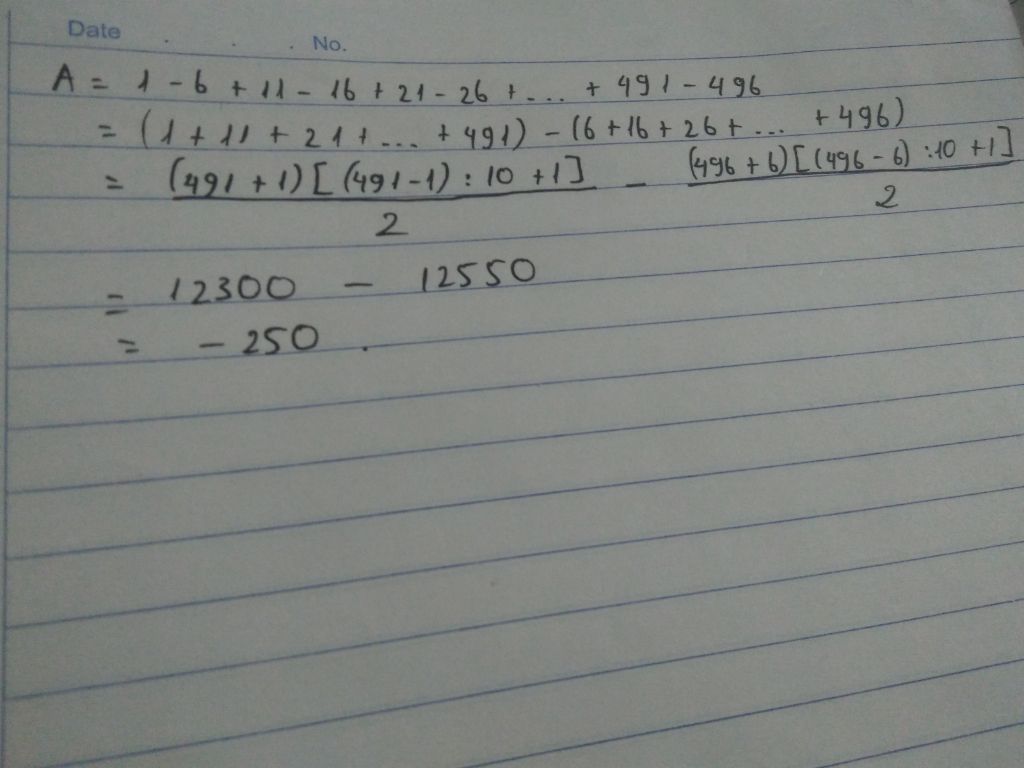 Date . . . No.
A = 1 - 6 + 11 - 16 + 21 - 26 + ... + 491 - 496
= (1 + 11 + 21 + ... + 491) - (6 + 16 + 26 + ... + 496)
= (491 + 1)[(491-1) : 10 + 1] / 2 - (496 + 6)[(496 - 6) : 10 + 1] / 2
= 12300 - 12550
= - 250 .